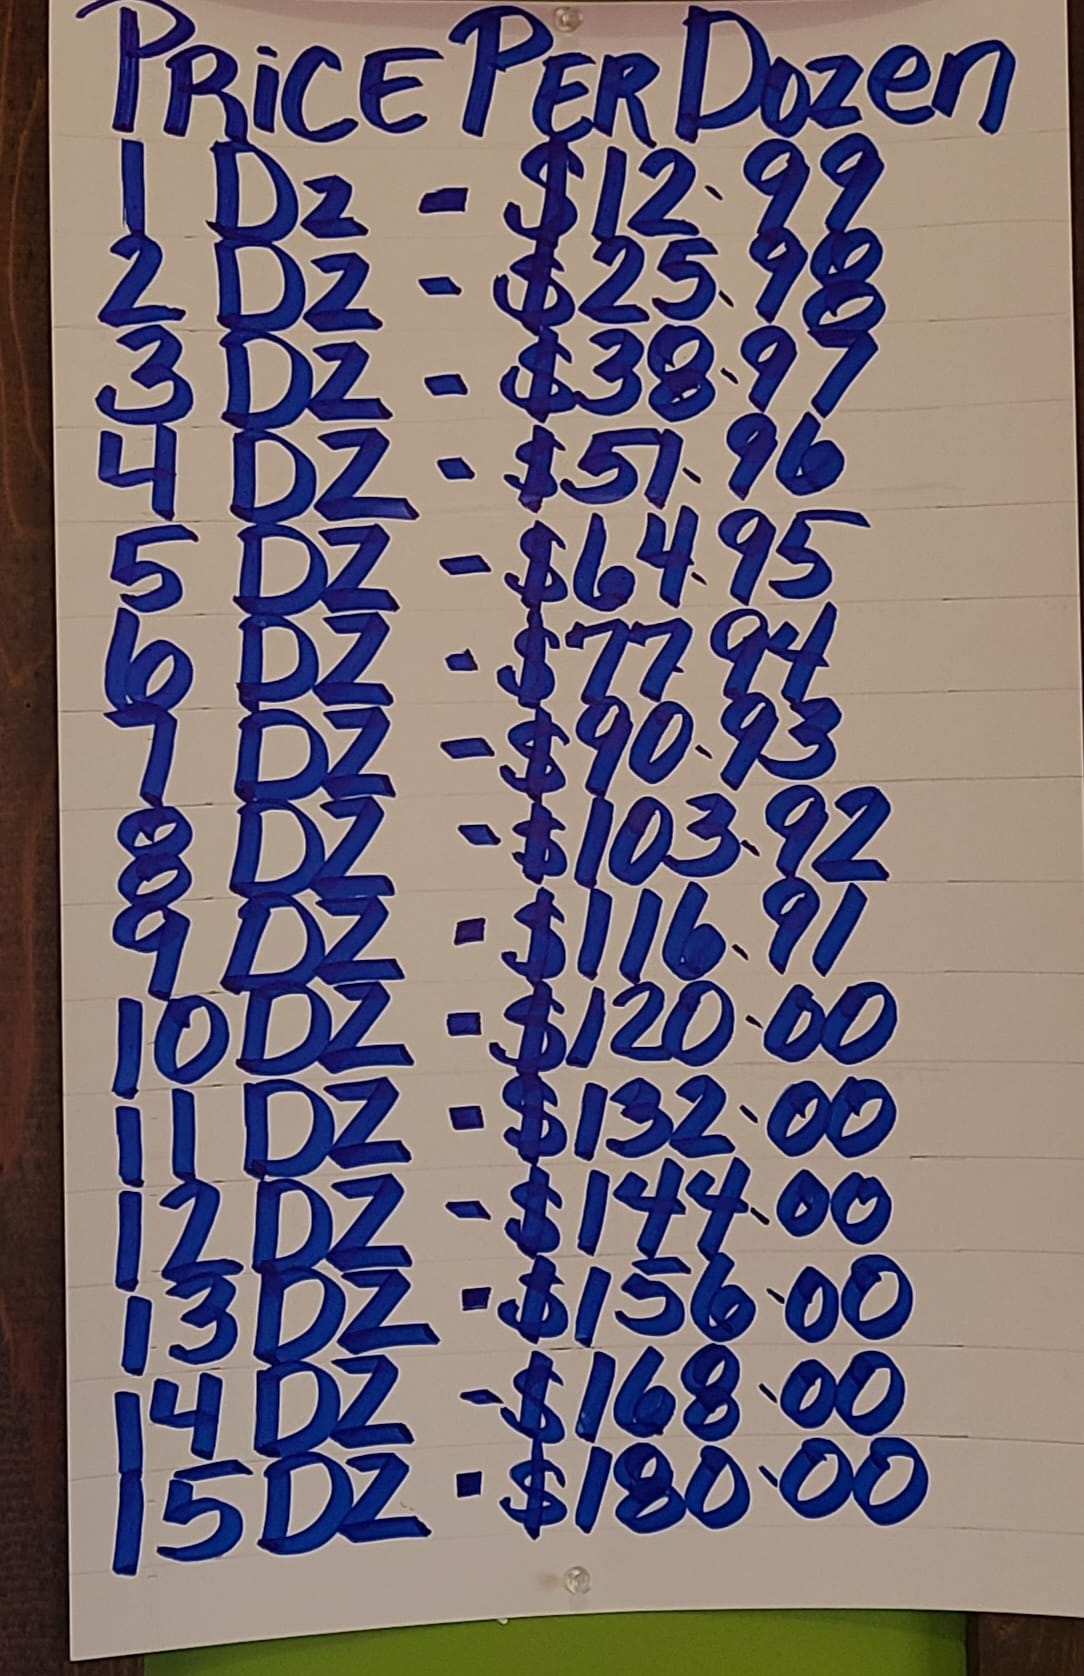 PRiCE PER Dozen
1 Dz - $12.99
2 Dz - $25.98
3 DZ - $38.97
4 DZ - $51.96
5 DZ - $64.95
6 DZ - $77.94
7 DZ - $90.93
8 DZ - $103.92
9 DZ - $116.91
10 DZ - $120.00
11 DZ - $132.00
12 DZ - $144.00
13 DZ - $156.00
14 DZ - $168.00
15 DZ - $180.00